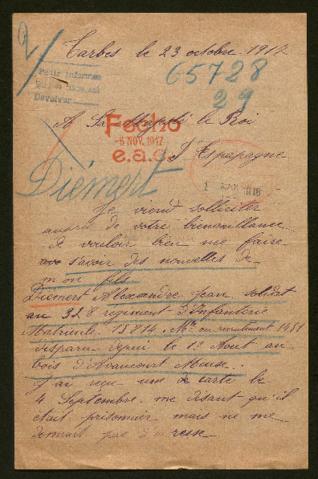 2/
Tarbes le 23 octobre 1917
65728
29
A Sa Majesté le Roi
Fecho
-6 NOV. 1917
e.a.c.
d'Espagne
Diémert
Je vient solliciter
auprès de votre bienveillance
de vouloir bien me faire
savoir des nouvelles de
mon fils
Diemert Alexandre Jean soldat
au 328 regiment d'Infanterie
Matricule 13814. No en recrutement 1451
disparu depui le 13 Aout au
bois d'Avaucourt Meuse.
J'ai reçu une carte le
4 Septembre me disant qu'il
etait prisonnier mais ne me
donnait pas d'adresse